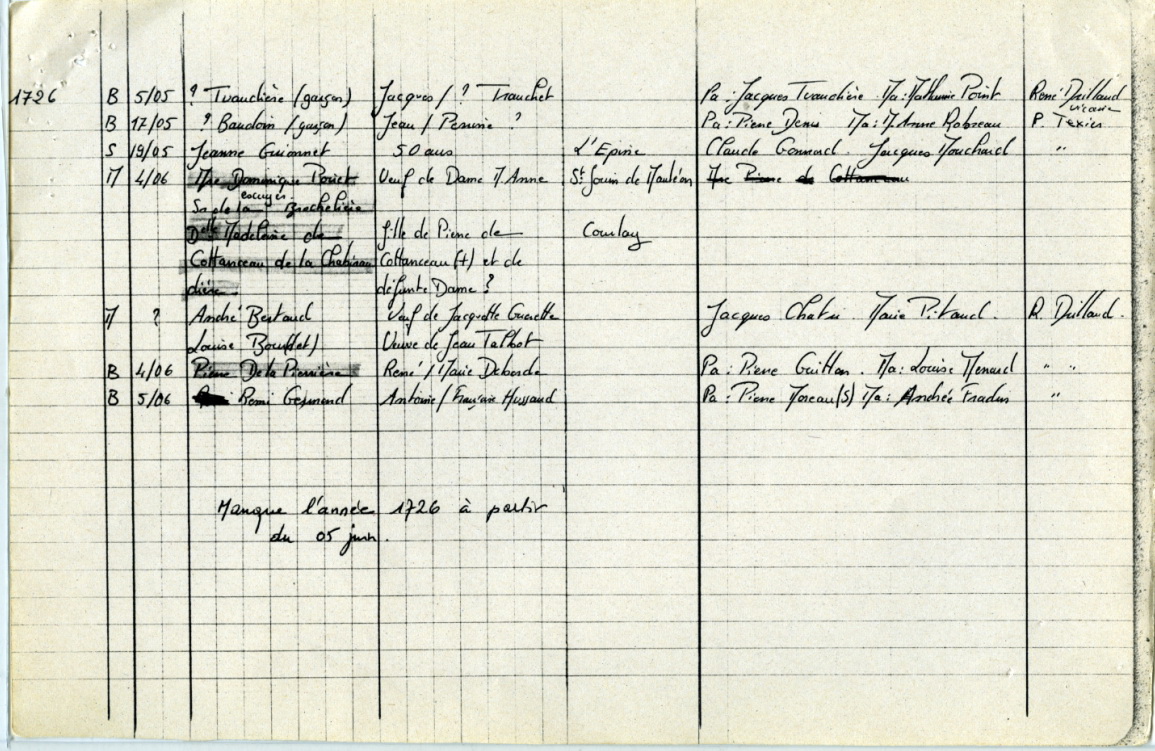 1726 B 5/05 ? Tvauchière (garçon) Jacques / ? Tranchet Pa : Jacques Tvauchière Ma : Mathurine Point René Deilland vicaire
B 17/05 ? Baudoin (garçon) Jean / Perrine ? Pa : Pierre Denis Ma : M. Anne Robreau P. Texier
S 19/05 Jeanne Guionnet 50 ans L'Epine Claude Gonnord Jacques Mouchard "
M 4/06 Mre Dominique Veuf de Dame M. Anne St Jouin de Mauléon Mre Pierre de Cottanceau
escuyer
Sr de la Brachelière
Delle Madeleine de fille de Pierre de Courlay
Cottanceau de la Chabirau Cottanceau (+) et de
dière défunte Dame ?
M ? André Bertaud Veuf de Jacquette Guerette Jacques Marie Pitaud. R. Deilland.
Louise Veuve de Jean Talbot
B 4/06 Pierre De la Pierrière René / Marie Deborde Pa : Pierre Guitton. Ma : Louise Menard " "
B 5/06 Remi Germond Antoine / Françoise Hussaud Pa : Pierre Moreau (S) Ma : Andrée Fradin "
Manque l'année 1726 à partir
du 05 juin.